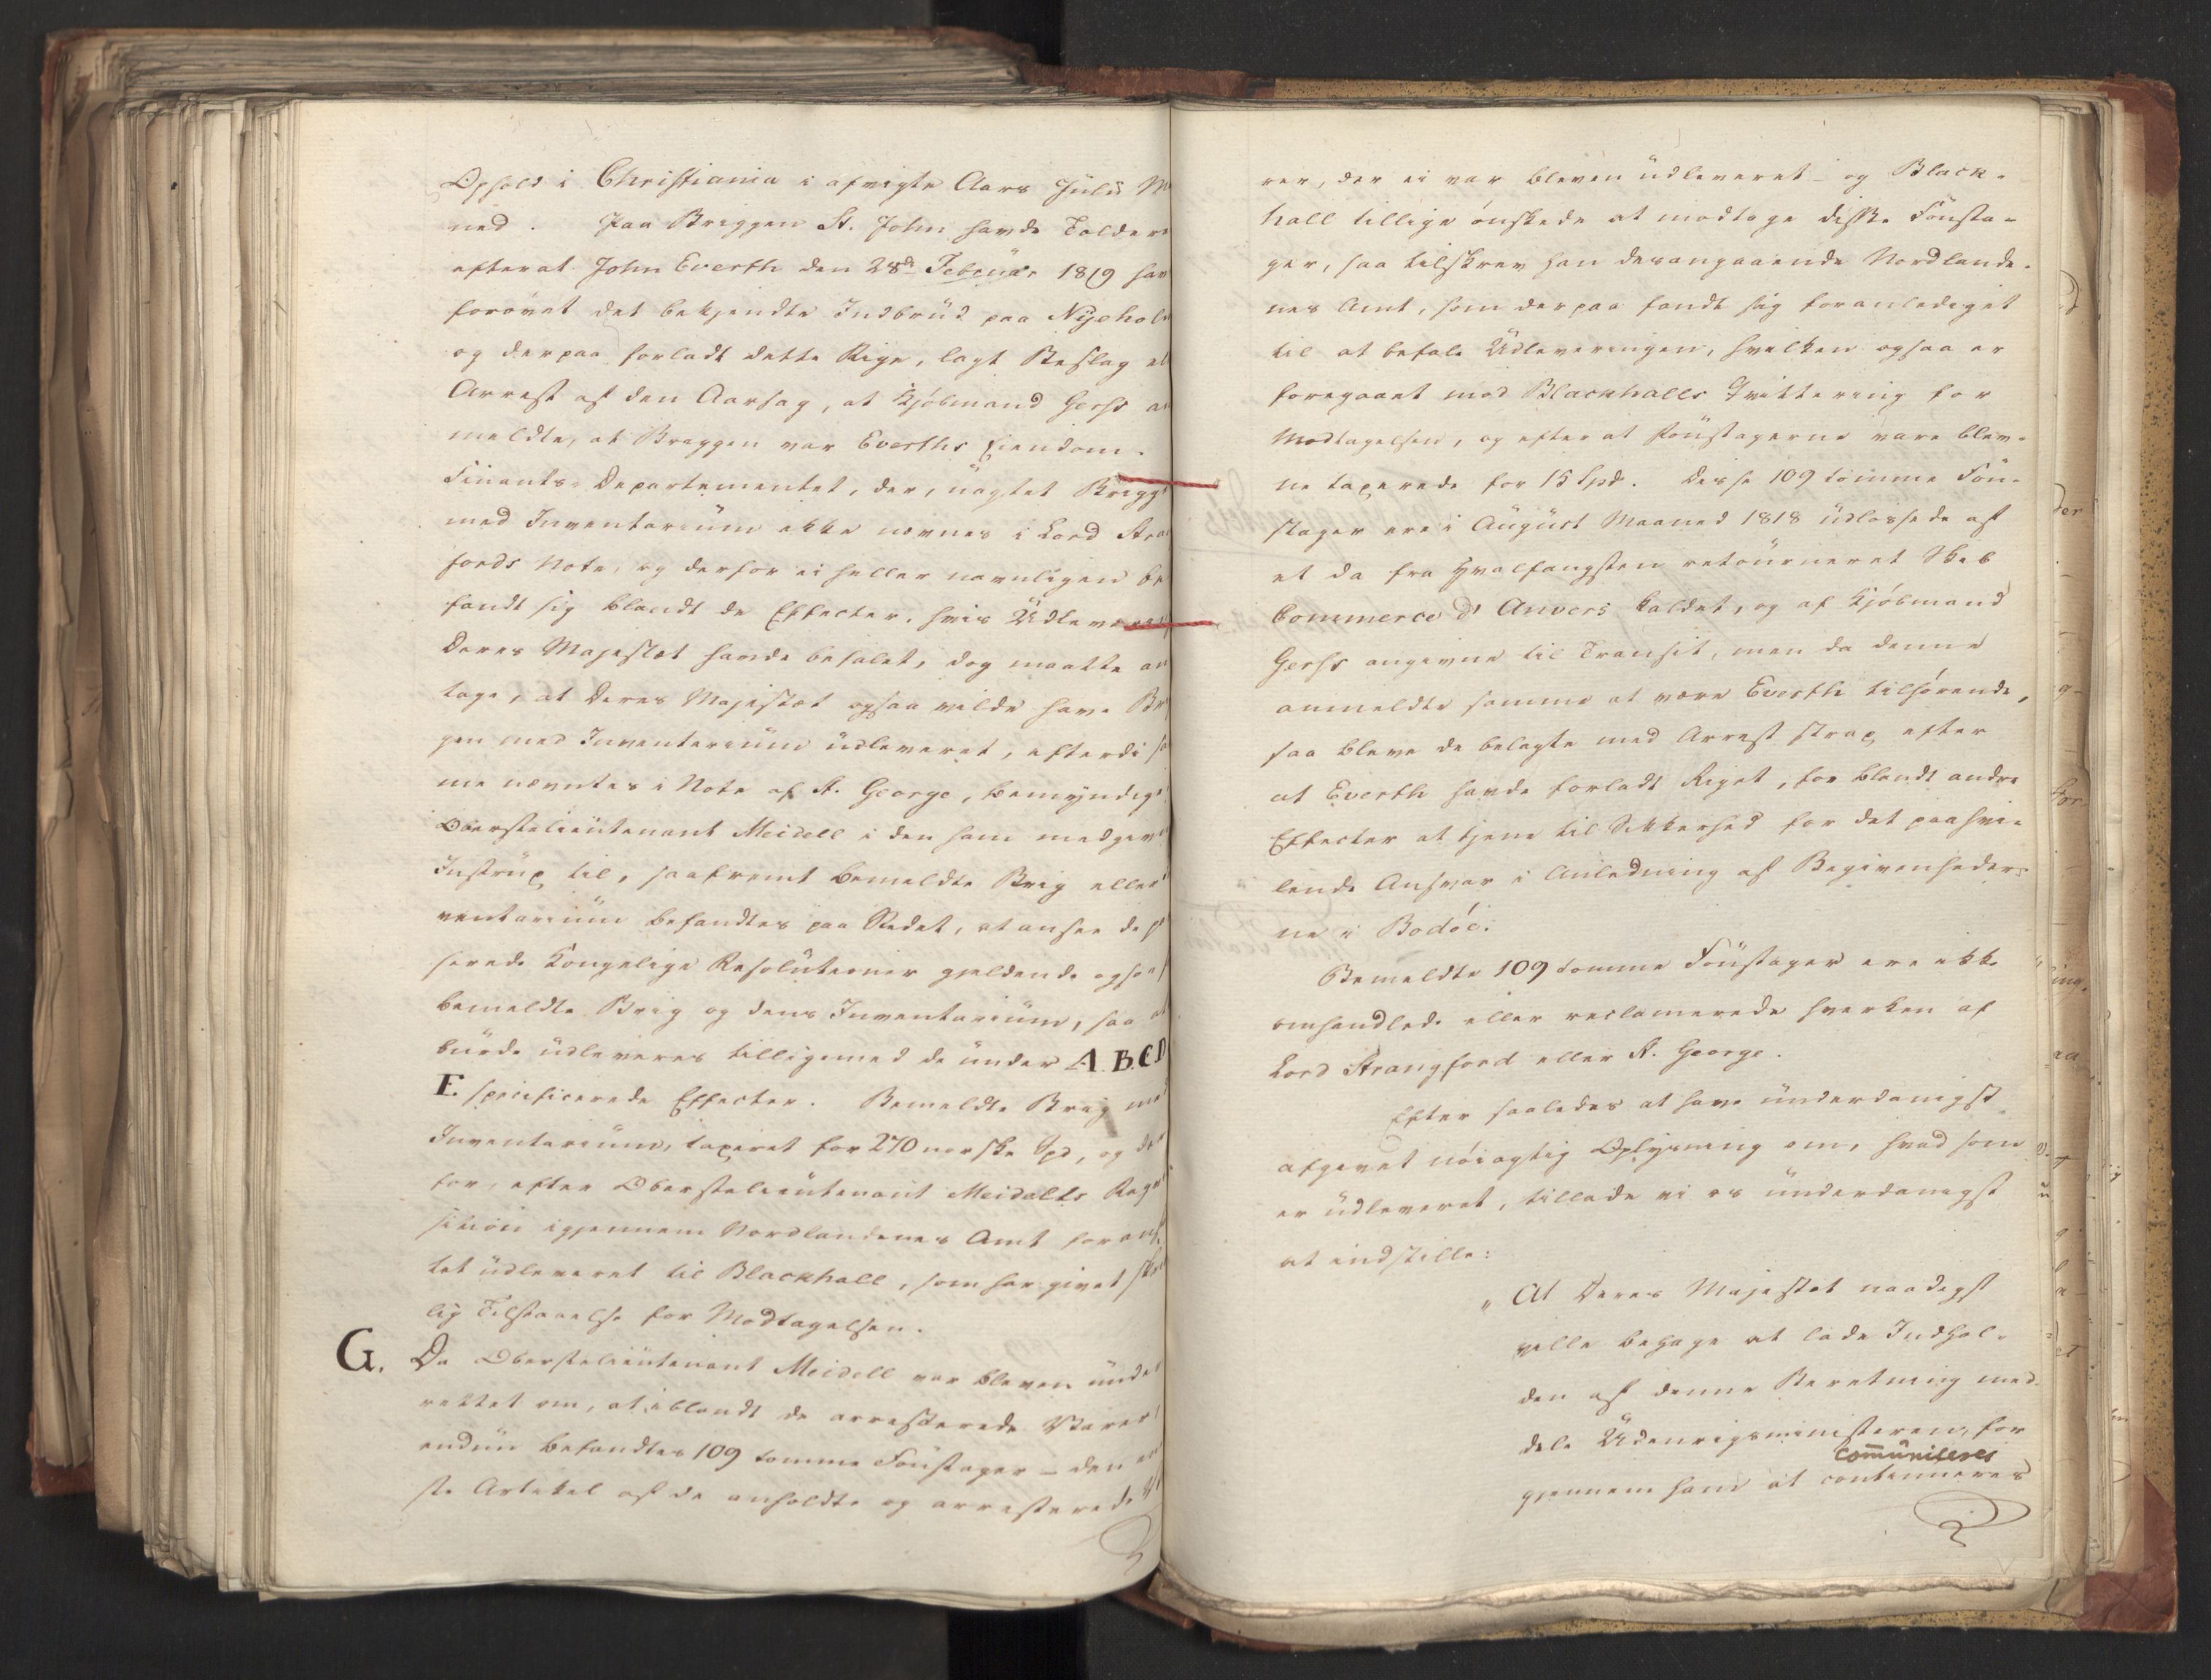 Ophold i Christiania i afvigte Aars Julii M
ned. Paa Briggen St. John havde Tolder
efterat John Everth den 28de Februar 1819 hav
forøvet det bekjendte Indbrud paa Nyehol
og derpaa forladt dette Rige, lagt Beslag el
Arrest af den Aarsag, at Kjøbmand Gerss an
meldte, at Braggen var Everths Eiendom.
Finants-Departementet, der, uagtet Brigg
med Inventarium ikke nævnes i Lord Stra
fords Note, og derfor ei heller navnligen be
fandt sig blandt de Effecter, hvis Udlever
Deres Majestæt havde befalet, dog maatte an
tage, at Deres Majestæt ogsaa vilde have Br
gen med Inventarium udleveret, efterdi sa
me nævntes i Note af St. George, bemyndige
Oberstelieutenant Meidell i den ham medgiv
Instrux til, saafremt bemeldte Brig eller
ventarium befandtes paa Stedet, at ansee de
serede Kongelige Resolutioner gjeldende ogsaa
bemeldte Brig og dens Inventarium, saa at
burde udleveres tilligemed de under A. B. C. D
E. specificerede Effecter. Bemeldte Brig med
Inventarium, taxeret for 270 norske Spd, og der
for, efter Oberstelieutenant Meidells Reqvi
sition igjennem Nordlandenes Amt foranst
tet udleveret til Blackhall, som har givet skrift
lig Tilstaaelse for Modtagelsen.
G. Da Oberstelieutenant Meidell var bleven under
rettet om, at iblandt de arresterede Varer
endnu befandtes 109 tomme Foustager – den en
ste Artikel af de anholdte og arresterede Va
rer, der ei var bleven udleveret – og Black-
hall tillige ønskede at modtage disse Fousta-
ger, saa tilskrev han desangaaende Nordlande-
nes Amt, som derpaa fandt sig foranlediget
til at befale Udleveringen, hvilken ogsaa er
foregaaet mod Blackhalls Qvittering for
Modtagelsen, og efterat Foustagerne vare blev-
ne taxerede for 15 Spd. Disse 109 tomme Fou-
stager ere i August Maaned 1818 udlossede af
et da fra Hvalfangsten retourneret Skib
Commerce d' Anvers kaldet, og af Kjøbmand
Gerss angivne til Transit, men da denne
anmeldte samme at være Everth tilhørende,
saa bleve de belagte med Arrest strax efter
at Everth havde forladt Riget, for blandt andre
Effecter at tjene til Sikkerhed for det paahvi-
lende Ansvar i Anledning af Begivenheder-
ne i Bodøe.
Bemeldte 109 tomme Foustager ere ikke
omhandlede eller reclamerede hverken af
Lord Strangford eller St. George.
Efter saaledes at have underdanigst
afgivet nøiagtig Oplysning om, hvad som
er udleveret, tillade vi os underdanigst
at indstille:
„At Deres Majestæt naadigst
ville behage at lade Indhol-
den af denne Beretning med-
dele Udenrigsministeren, for
communiceres
gjennem ham at continueres